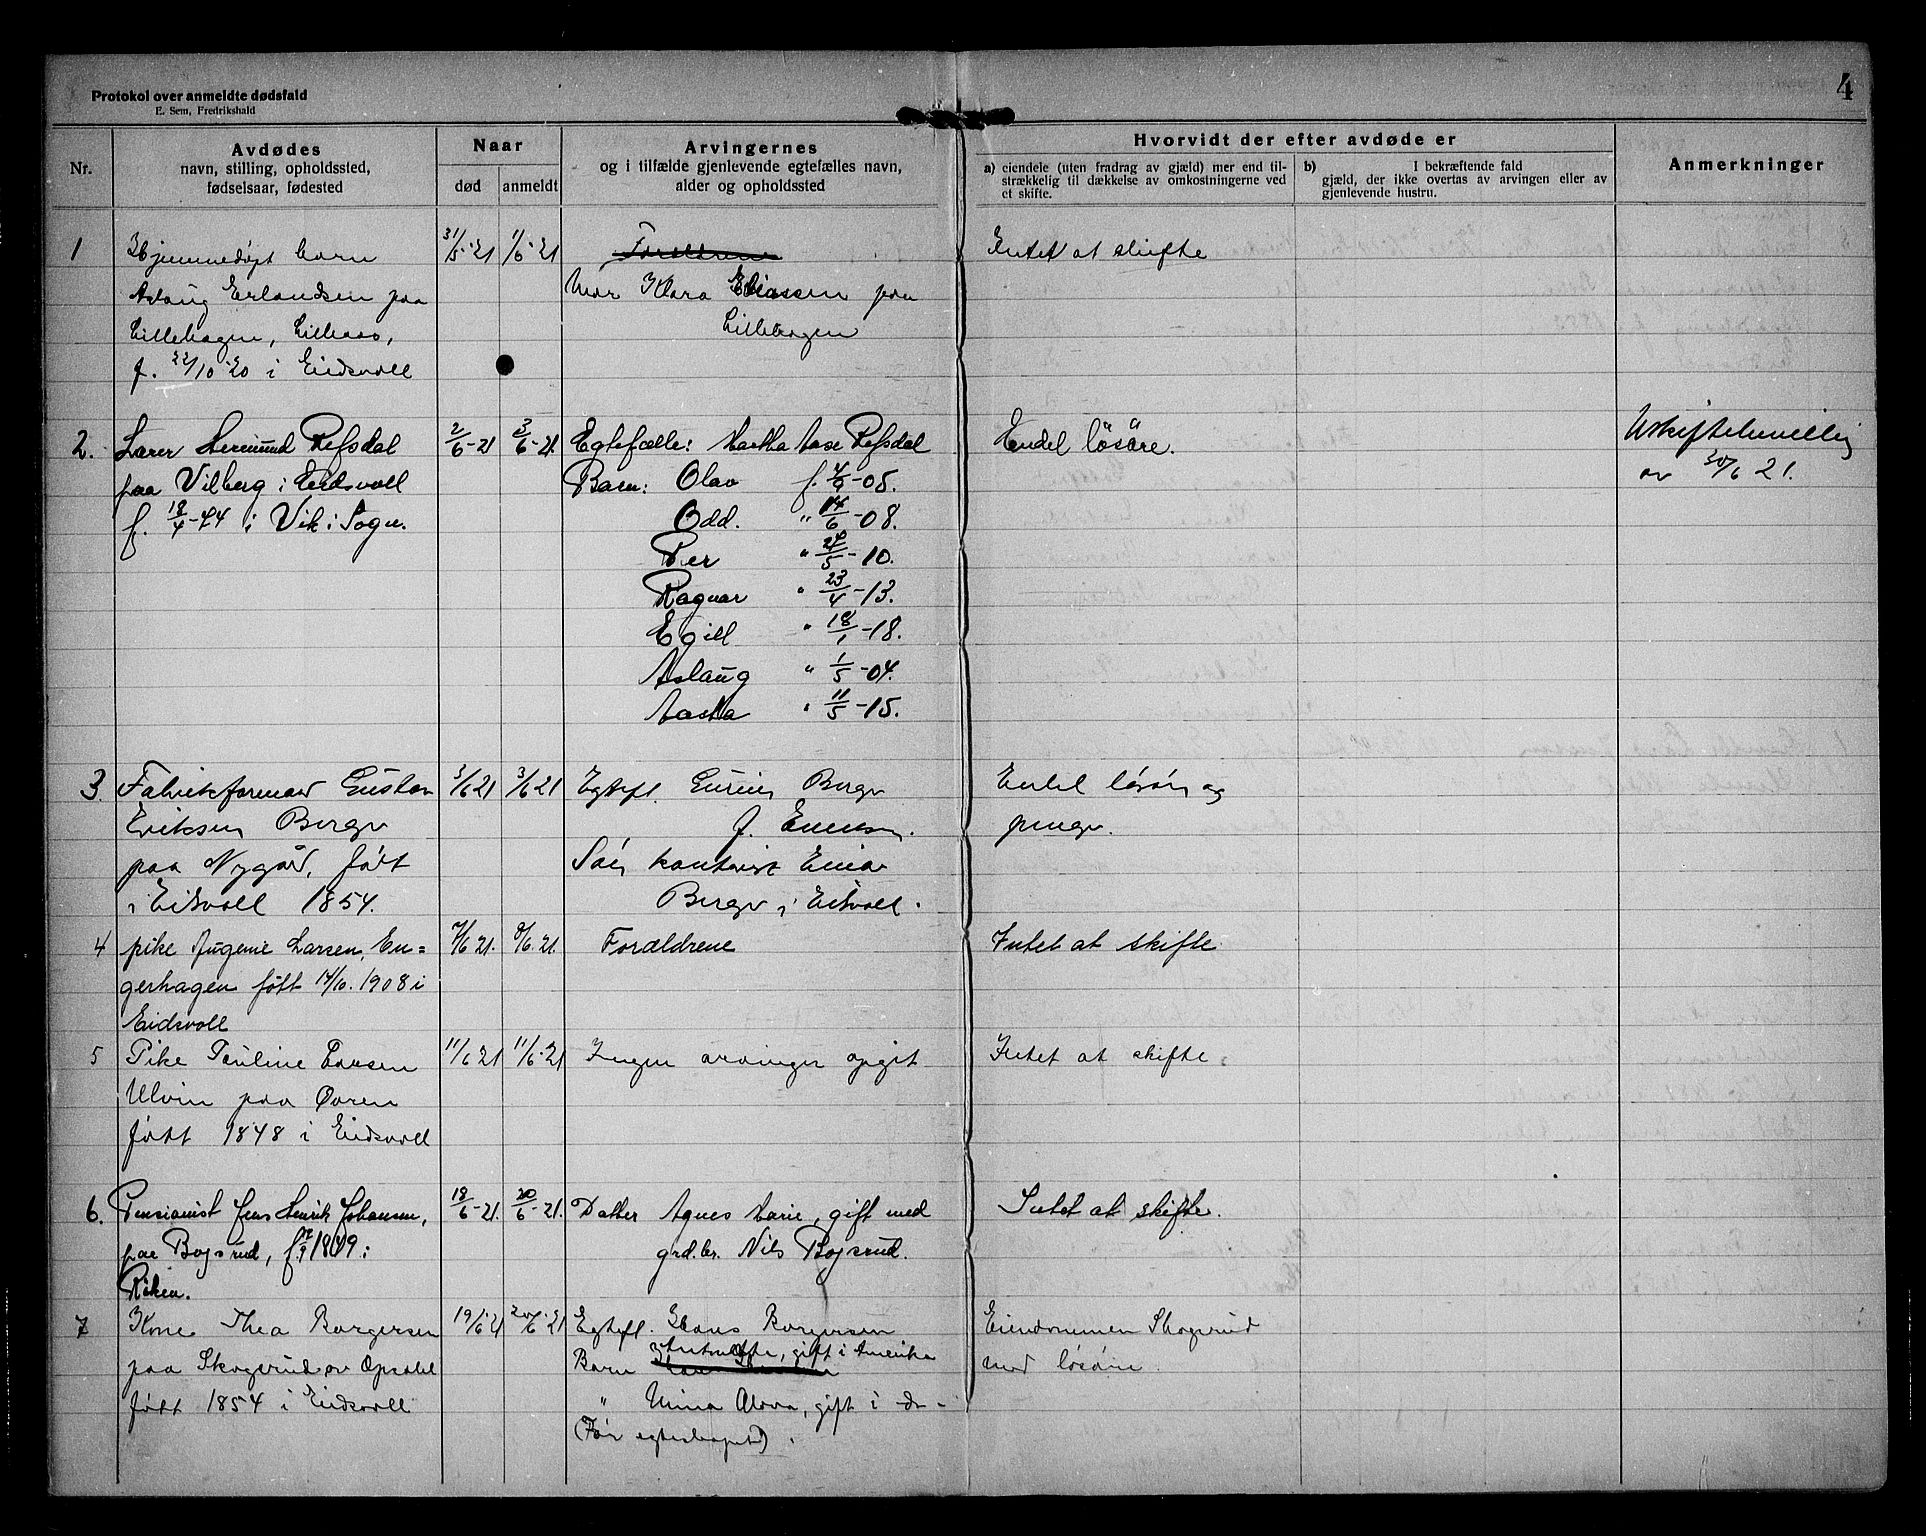 4
Protokol over anmeldte dødsfald
E. Sem, Fredrikshald
Nr.
Avdødes
navn, stilling, opholdssted,
fødselsaar, fødested
Naar
død
anmeldt
Arvingernes
og i tilfælde gjenlevende egtefælles navn,
alder og opholdssted
Hvorvidt der efter avdøde er
a) eiendele (uten fradrag av gjæld) mer end til-
strækkelig til dækkelse av omkostningerne ved
et skifte.
b) I bekræftende fald
gjæld, der ikke overtas av arvingen eller av
gjenlevende hustru.
Anmerkninger
1
Hjemmedøpt barn
Aslaug Erlandsen paa
Lillehagen, Lilleaas,
f. 22/10 20 i Eidsvoll
31/5-21
1/6-21
Forældrene
Mor Klara Eliassen paa
Lillehagen
Intet at skifte
2.
Lærer Hermund Refsdal
paa Vilberg i Eidsvoll
f. 18/4-74 i Vik i Sogn.
2/6-21
3/6-21.
Egtefælle: Martha Aase Refsdal
Barn: Olav f. 4/9-05.
Odd. " 14/6-08.
Per " 27/5-10.
Ragnar " 23/4-13.
Egill " 18/1-18.
Aslaug " 1/5-04.
Aasta " 11/5-15.
Endel løsøre.
Uskiftebevilling
av 30/6 21.
3.
Fabrikformand Gustav
Eriksen Berger
paa Nygård, født
i Eidsvoll 1854.
3/6 21
3/6 21
Egtefl. Berger
f.
Søn kontorist Einar
Berger i Eidsvoll.
Endel løsøre og
penger.
4
pike Augenie Larsen, En=
gerhagen født 14/10. 1908 i
Eidsvoll
7/6 21.
9/6. 21.
Forældrene
Intet at skifte
5
Pike Pauline Larsen
Ulvin paa Øvren
født 1848 i Eidsvoll
11/6 21
11/6-21
Ingen arvinger opgit
Intet at skifte.
6.
Pensionist Jens Henrik Johansen,
paa Bøjsrud, f. 1849 i
Røken.
18/6-21.
20/6-21.
Datter Agnes Marie, gift med
grd.br. Nils Bøjsrud.
Intet at skifte.
7
Kone Thea Borgersen
paa Skogsrud av Opsahl
født 1854 i Eidsvoll
19/6 21
20/6-21
Egtefl. Hans Borgersen
Barn Antonette, gift i Amerika
" Mina Olava, gift i do -
(Før egteskapet).
Eiendommen Skogsrud
med løsøre.